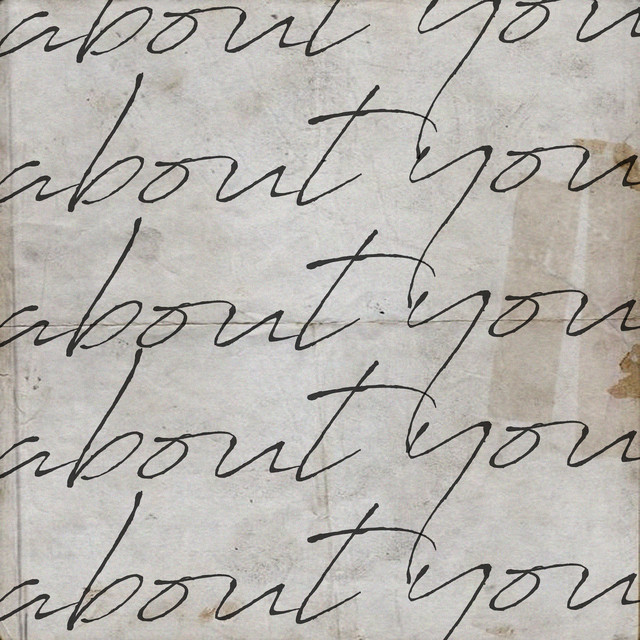 about you
about you
about you
about you
about you